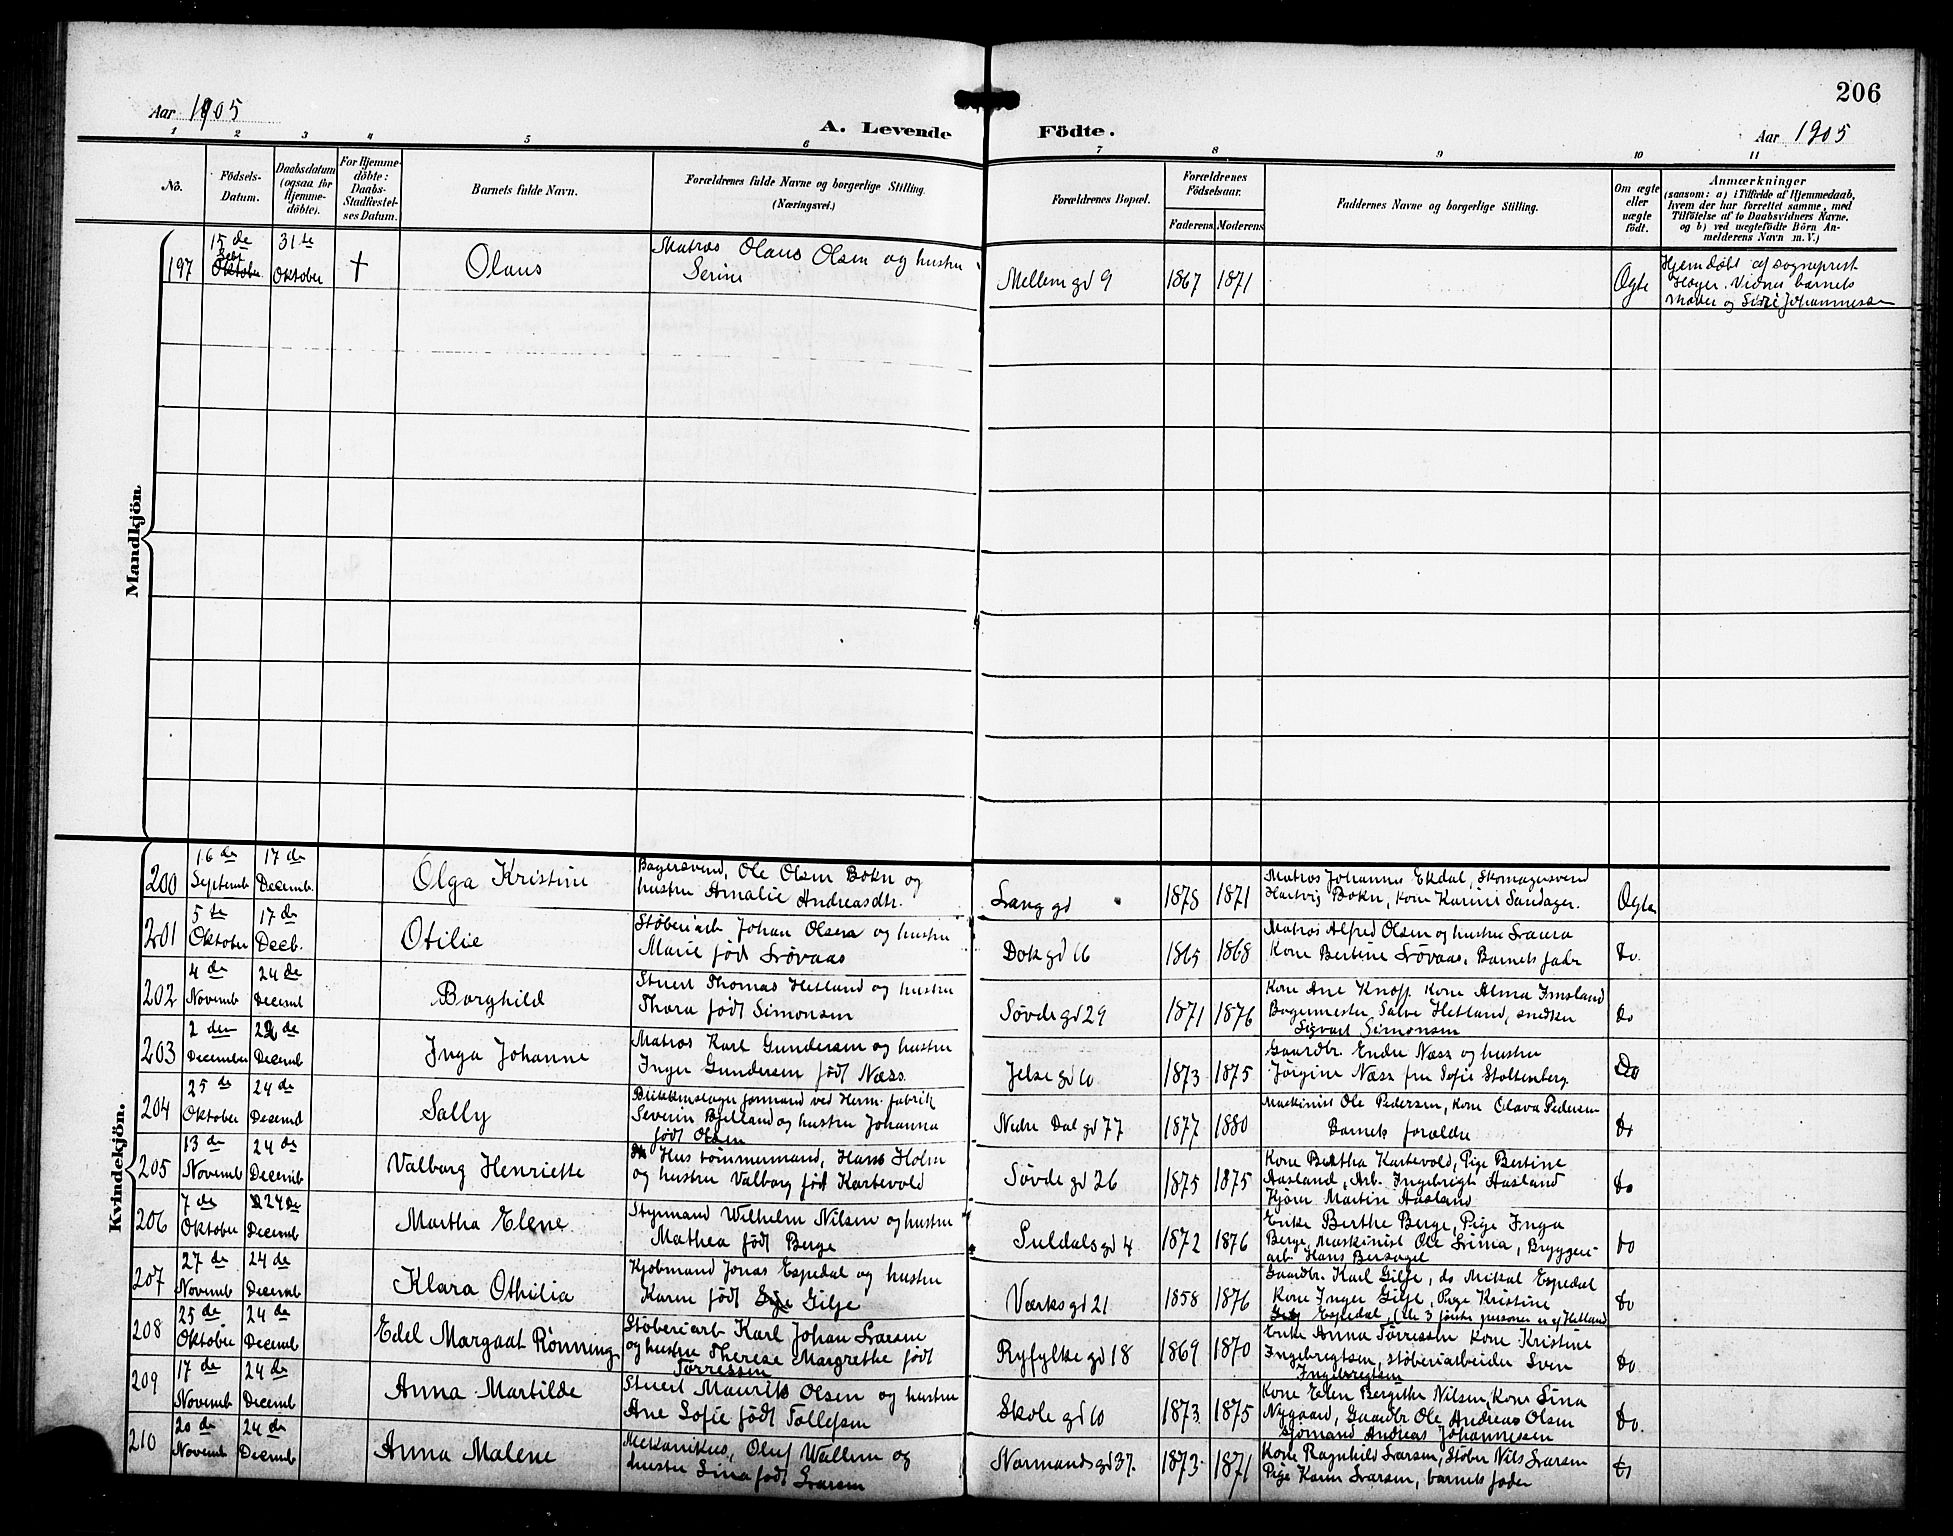 206
Aar 1905
A. Levende Födte.
Aar 1905
1 2 3 4 5 6 7 8 9 10 11
No.
Födsels-
Datum.
Daabsdatum
(ogsaa for
Hjemme-
döbte).
For Hjemme-
döbte:
Daabs-
Stadfæstel-
ses Datum.
Barnets fulde Navn.
Forældrenes fulde Navne og borgerlige Stilling.
(Næringsvei.)
Forældrenes Bopæl.
Forældrenes
Födselsaar.
Faderens
Moderens
Faddernes Navne og borgerlige Stilling.
Om ægte
eller
uægte
födt.
Anmærkninger
(saasom: a) i Tilfælde af Hjemmedaab,
hvem der har forrettet samme, med
Tilföielse af to Daabsvidners Navne.
og b) ved uægtefödte Börn An-
melderens Navn m. V.)
Mandkjön
197
15 de
Sebt
Oktober
31 te
Oktober
†
Olaus
Matros Olaus Olsen og hustru
Serine
Mellem gd 9
1867
1871
Ogte
Hjemdøbt af sogneprest
Høyer. Vidner barnets
Moder og Johannesen
Kvindekjön.
200
16 de
Septemb
17 de
Decemb.
Olga Kristine
Bagersvend, Ole Olsen Bokn og
hustru Amalie Andreasdtr.
Lang gd
1878
1871
Matros Johannes Ekdal, Skomagersvend
Hartvig Bokn, kone Karine Sandager.
Ogte
201
5 te
Oktober
17 de
Decb.
Otilie
Støberiarb Johan Olsen og hustru
Marie født Lrøvaas
Dok gd 16
1865
1868
Matros Alfred Olsen og hustru Laura
Kone Bertine Lrøvaas. Barnets fader
Do.
202
4 de
Novemb
24 de
Decemb
Borghild
Stuert Thomas Hetland og hustru
Thora født Simonsen
Søvde gd 29
1871
1876
Kone Ane Knoff. Kone Alma Imsland
Bagermester Salve Hetland, snedker
Sigvart Simonsen
Do
203
2 den
December
22 de
Decemb
Inga Johanne
Matros Karl Gundersen og hustru
Inger Gundersen født Næss.
Jelse gd 10
1873
1875
Gaardbr. Endre Næss og hustru
Jørgine Næss frk Sofie Stoltenberg
Do
204
25 de
Oktober
24 de
Decemb
Sally
Blikkenslager formand ved Herm. fabrik
Severin Bjelland og hustru Johanna
født Olsen
Nedre Dal gd 77
1877
1880
Maskinist Ole Pedersen, Kone Olava Pedersen
Barnets forældre
Do
205
13 de
Novemb
24 de
Decemb
Valborg Henriette
Hus tømmermand, Hans Holm
og hustru Valborg født Kartevold
Søvde gd 26
1875
1875
Kone Bertha Kartevold, Pige Bertine
Aasland, Arb. Ingebrigt Aasland
Martin Aasland
Do
206
7 de
Oktober
24 de
Decemb
Martha Elene
Styrmand Wilhelm Nilsen og hustru
Mathea født Berge
Suldals gd 4
1872
1876
Enke Berthe Berge, Pige Inga
Berge, Maskinist Ole Lima, Bryggeri
arb. Hans Bersagel
Do
207
27 de
Novemb
24 de
Decemb
Klara Othilia
Kjøbmand Jonas Espedal og hustru
Karen født Gilje
Værks gd 21
1858
1876
Gaardbr. Karl Gilje, do Mikal Espedal
Kone Inger Gilje, Pige Kristine
Espedal, (de 3 første personer er af Helland
Do
208
25 de
Oktober
24 de
Decemb
Edel Margaat Rønning
Støberiarb Karl Johan Larsen
og hustru Therese Margrethe født
Tørressen
Ryfylke gd 18
1869
1870
Enke Anna Tørressen Kone Kristine
Ingebregtsen, støberiarbeider Sven
Ingebregtsen
Do.
209
17 de
Novemb
24 de
Decemb
Anna Martilde
Stuert Maurits Olsen og hustru
Ane Sofie født Tollefsen
Skole gd 10
1873.
1875
Kone Elen Bergithe Nilsen, Kone Sina
Nygaard, Gaardbr Ole Andreas Olsen
Sjømand Andreas Johannessen
Do.
210
20 de
Novemb
24 de
Decemb
Anna Malene
Mekanikus, Oluf Wallem og
hustru Lina født Larsen
Normands gd 37.
1873.
1871
Kone Ragnhild Larsen, Støber Nils Larsen
Pige Karen Larsen, barnets fader
Do